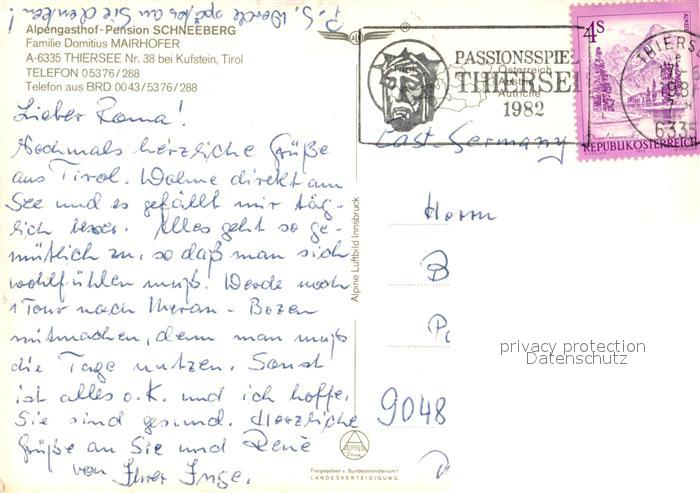 P.S. Werde später an Sie denken!
Alpengasthof - Pension SCHNEEBERG
Familie Domitius MAIRHOFER
A-6335 THIERSEE Nr. 38 bei Kufstein, Tirol
TELEFON 05376/288
Telefon aus BRD 0043/5376/288
Lieber Roma!
Nochmals herzliche Grüße
aus Tirol. Wohne direkt am
See und es gefällt mir täg-
lich besser. Alles geht so ge-
mütlich zu, so daß man sich
wohlfühlen muß. Werde noch
1 Tour nach Meran - Bozen
mitmachen, denn man muß
die Tage nutzen. Sonst
ist alles o.K. und ich hoffe,
Sie sind gesund. Herzliche
Grüße an Sie und René
von Ihrer Inge.
Alpine Luftbild Innsbruck
ALPINE
Freigegeben v. Bundesministerium f.
LANDESVERTEIDIGUNG
PASSIONSSPIE
THIERSEE
1982
Österreich
Austria
Autriche
4S
REPUBLIK ÖSTERREICH
THIERS
633
East Germany
Herrn
B
P
9048
privacy protection
Datenschutz